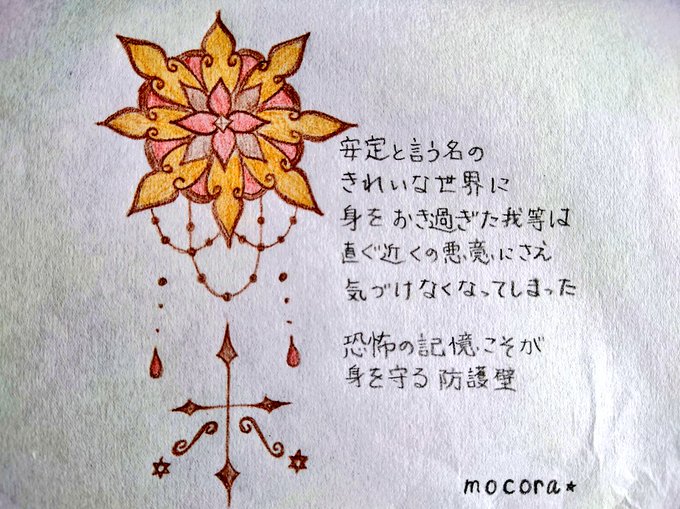 安定と言う名の
きれいな世界に
身をおき過ぎた我等は
直ぐ近くの悪意にさえ
気づけなくなってしまった
恐怖の記憶こそが
身を守る防護壁
mocora★